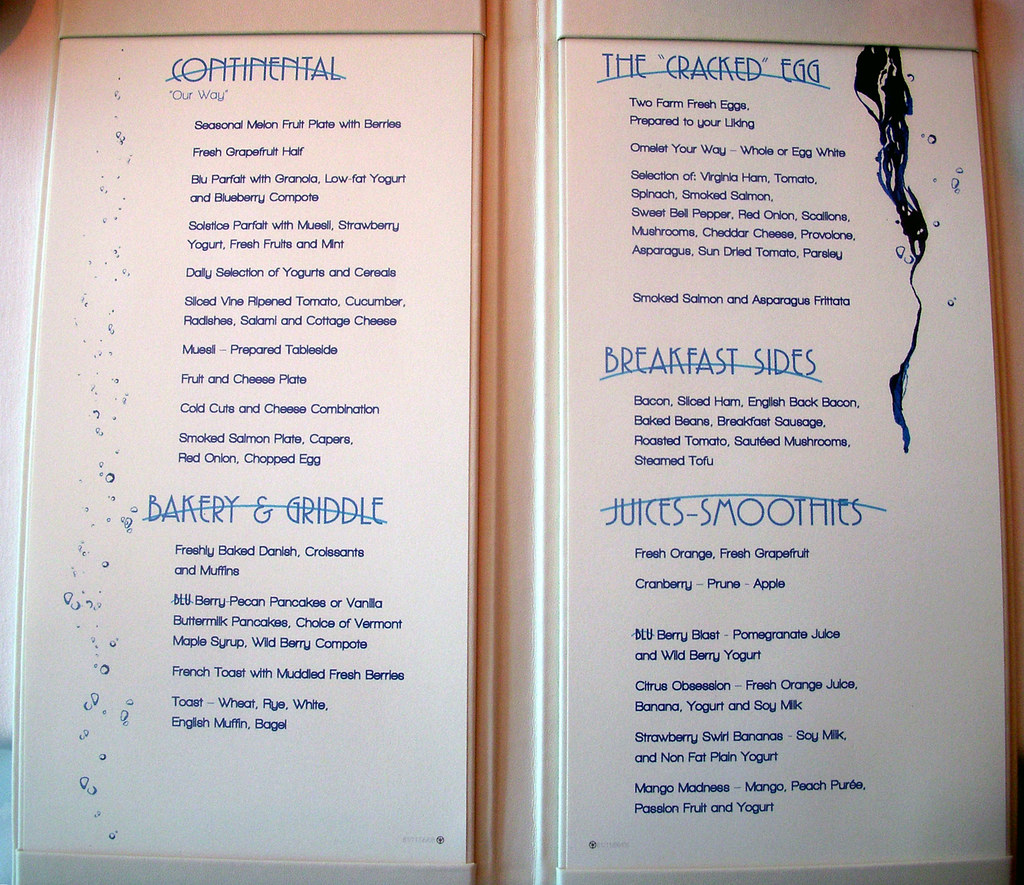 CONTINENTAL
"Our Way"
Seasonal Melon Fruit Plate with Berries
Fresh Grapefruit Half
Blu Parfait with Granola, Low-fat Yogurt
and Blueberry Compote
Solstice Parfait with Muesli, Strawberry
Yogurt, Fresh Fruits and Mint
Daily Selection of Yogurts and Cereals
Sliced Vine Ripened Tomato, Cucumber,
Radishes, Salami and Cottage Cheese
Muesli – Prepared Tableside
Fruit and Cheese Plate
Cold Cuts and Cheese Combination
Smoked Salmon Plate, Capers,
Red Onion, Chopped Egg
BAKERY & GRIDDLE
Freshly Baked Danish, Croissants
and Muffins
BLU Berry-Pecan Pancakes or Vanilla
Buttermilk Pancakes, Choice of Vermont
Maple Syrup, Wild Berry Compote
French Toast with Muddled Fresh Berries
Toast – Wheat, Rye, White,
English Muffin, Bagel
THE "CRACKED" EGG
Two Farm Fresh Eggs,
Prepared to your Liking
Omelet Your Way – Whole or Egg White
Selection of: Virginia Ham, Tomato,
Spinach, Smoked Salmon,
Sweet Bell Pepper, Red Onion, Scallions,
Mushrooms, Cheddar Cheese, Provolone,
Asparagus, Sun Dried Tomato, Parsley
Smoked Salmon and Asparagus Frittata
BREAKFAST SIDES
Bacon, Sliced Ham, English Back Bacon,
Baked Beans, Breakfast Sausage,
Roasted Tomato, Sautéed Mushrooms,
Steamed Tofu
JUICES-SMOOTHIES
Fresh Orange, Fresh Grapefruit
Cranberry – Prune - Apple
BLU Berry Blast - Pomegranate Juice
and Wild Berry Yogurt
Citrus Obsession – Fresh Orange Juice,
Banana, Yogurt and Soy Milk
Strawberry Swirl Bananas - Soy Milk,
and Non Fat Plain Yogurt
Mango Madness – Mango, Peach Purée,
Passion Fruit and Yogurt